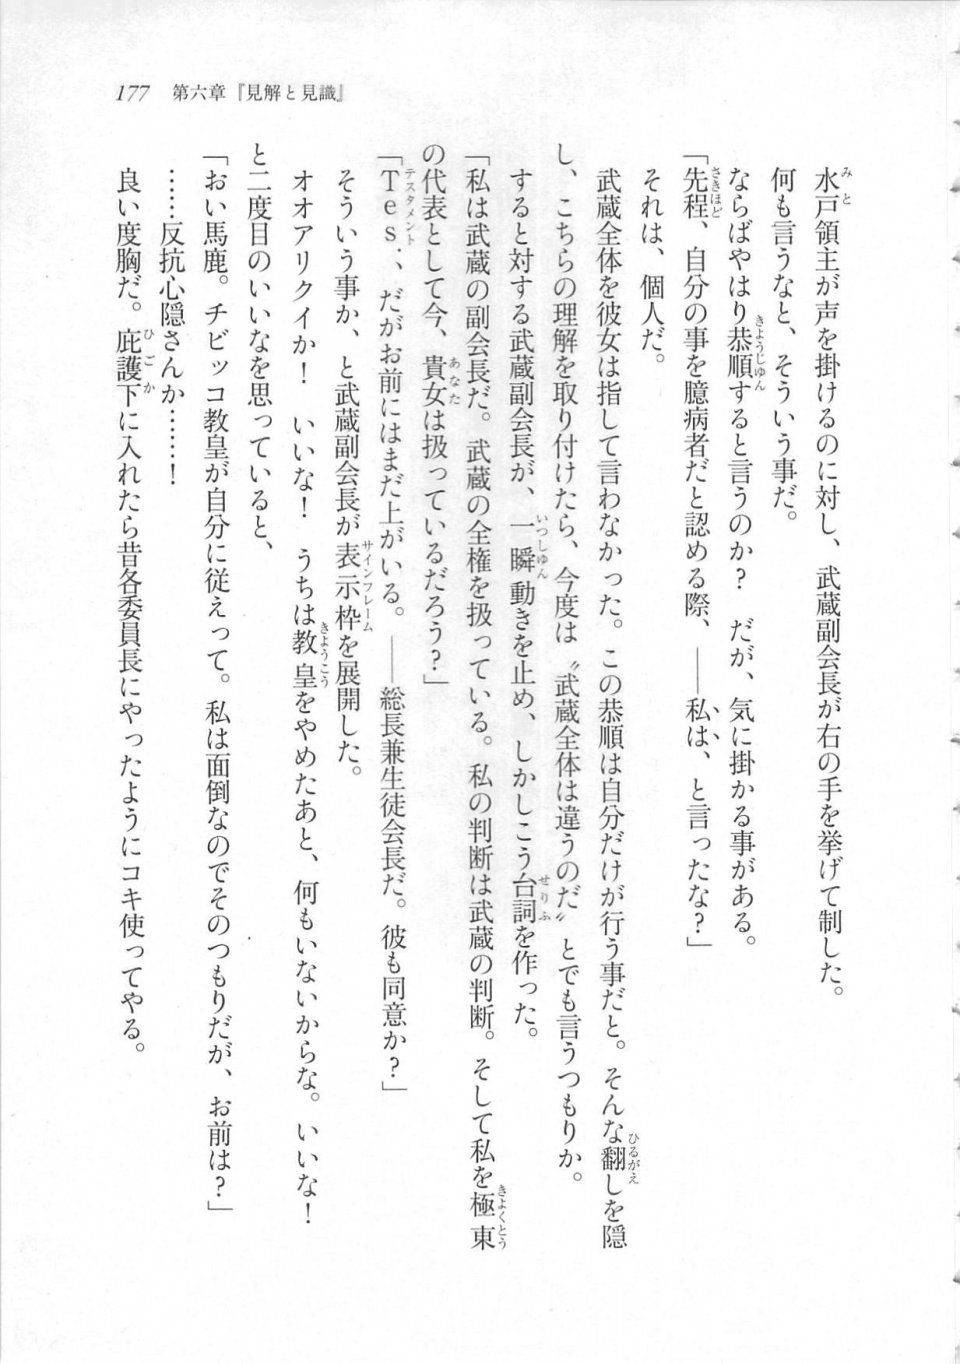 177 第六章『見解と見識』
水戸領主が声を掛けるのに対し、武蔵副会長が右の手を挙げて制した。
何も言うなと、そういう事だ。
ならばやはり恭順すると言うのか？　だが、気に掛かる事がある。
「先程、自分の事を臆病者だと認める際、――私は、と言ったな？」
それは、個人だ。
武蔵全体を彼女は指して言わなかった。この恭順は自分だけが行う事だと。そんな翻しを隠
し、こちらの理解を取り付けたら、今度は〝武蔵全体は違うのだ〟とでも言うつもりか。
すると対する武蔵副会長が、一瞬動きを止め、しかしこう台詞を作った。
「私は武蔵の副会長だ。武蔵の全権を扱っている。私の判断は武蔵の判断。そして私を極東
の代表として今、貴女は扱っているだろう？」
「Ｔｅｓ．、だがお前にはまだ上がいる。――総長兼生徒会長だ。彼も同意か？」
そういう事か、と武蔵副会長が表示枠を展開した。
オオアリクイか！　いいな！　うちは教皇をやめたあと、何もいないからな。いいな！
と二度目のいいなを思っていると、
「おい馬鹿。チビッコ教皇が自分に従えって。私は面倒なのでそのつもりだが、お前は？」
……反抗心隠さんか……！
良い度胸だ。庇護下に入れたら昔各委員長にやったようにコキ使ってやる。